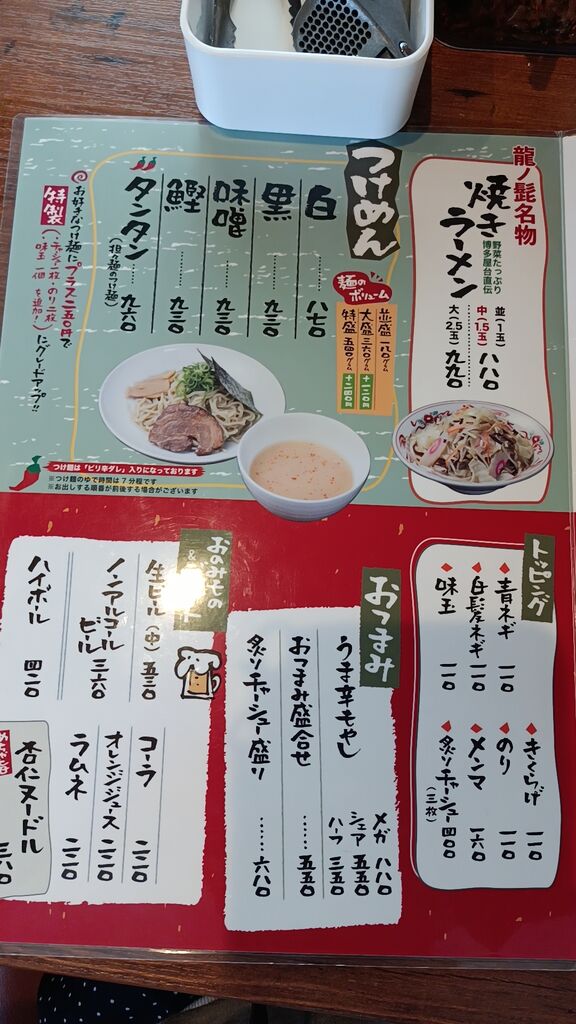 龍ノ髭名物
焼きラーメン
野菜たっぷり
博多屋台直伝
並(1玉)
中(1.5玉) 八八〇
大(2.5玉) 九九〇
つけめん
白 ……… 八七〇
黒 ……… 九三〇
味噌 ……… 九三〇
鰹 ……… 九三〇
タンタン ……… 九六〇
(担々麺のつけ麺)
麺のボリューム
並盛 一八〇グラム
大盛 三六〇グラム +一二〇円
特盛 五四〇グラム +二四〇円
お好きなつけ麺にプラス二五〇円で
特製
(チャーシュー二枚・のり二枚
味玉一個を追加)
にグレードアップ!!
つけ麺は「ピリ辛ダレ」入りになっております
※つけ麺のゆで時間は7分程です
※お出しする順番が前後する場合がございます
トッピング
青ネギ 一一〇
白髪ネギ 一一〇
味玉 一一〇
きくらげ 一一〇
のり 一一〇
メンマ 一六〇
炙りチャーシュー(三枚) 四〇〇
おつまみ
うま辛もやし
メガ 八八〇
シェア 五五〇
ハーフ 三五〇
おつまみ盛合せ …… 五五〇
炙りチャーシュー盛り …… 六八〇
おのみもの
&
生ビール(中) 五三〇
ノンアルコールビール 三六〇
ハイボール 四二〇
コーラ 二二〇
オレンジジュース 二二〇
ラムネ 二二〇
杏仁ヌードル 三六〇